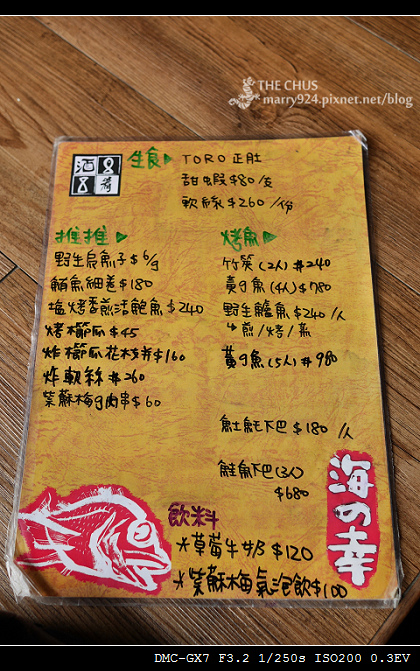 THE CHUS
marry924.pixnet.net/blog
酒
8
8
肴
生食
TORO 正肚
甜蝦$80/支
軟絲$260/份
推推
野生烏魚子$6/g
$180
塩烤香煎活鮑魚$240
烤櫛瓜$45
炸櫛瓜花$160
炸軟絲#260
紫蘇梅肉串$60
烤魚
竹筴(2人)#240
黃魚(4人)$780
野生鱸魚$240/人
煎/烤/蒸
黃魚(5人)#980
魠魠下巴$180/人
鮭魚下巴(3人)
$680
海の幸
飲料
*草莓牛奶$120
*紫蘇梅氣泡飲$100
DMC-GX7 F3.2 1/250s ISO200 0.3EV